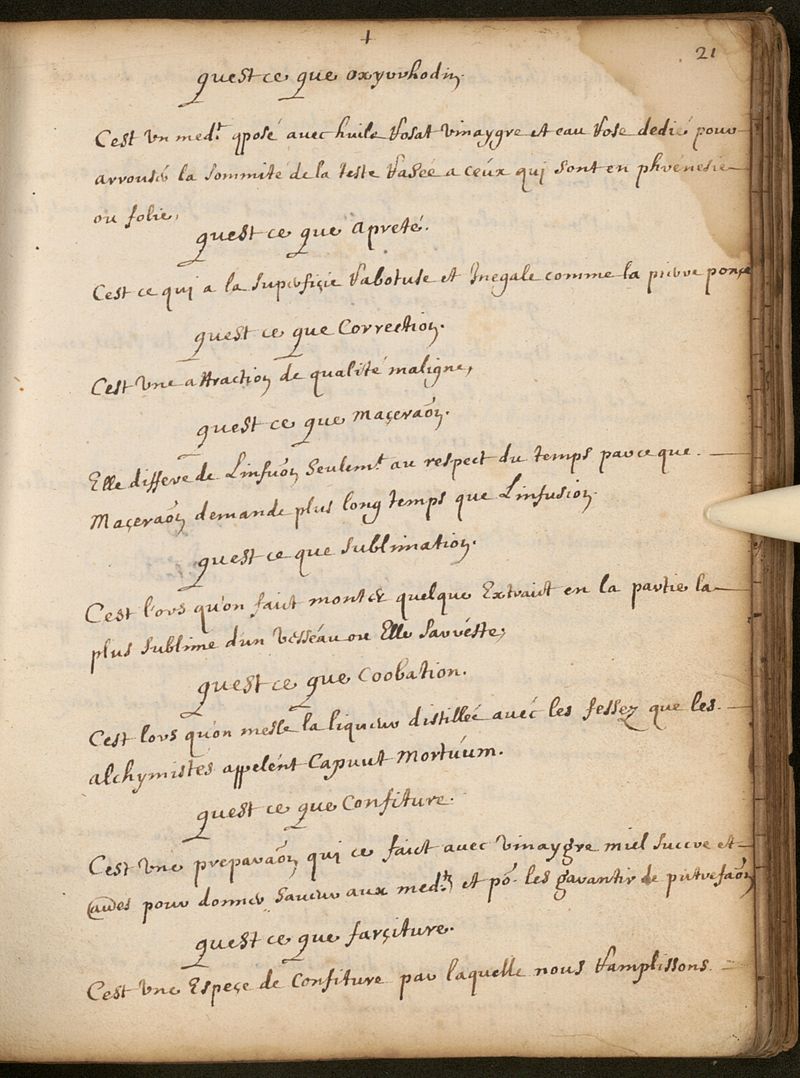 +
21
quest ce que oxyrrhodin.
Cest Un med.t qposé avec huile Rosat vinaygre et eau Rose dedié pour
arrouser la sommité de la teste Rasée a ceux qui sont en phrenesie
ou folie,
quest ce que Apreté.
Cest ce qui a la superfiçie Raboteuse et Inegale comme la pierre ponçe
quest ce que Correction.
Cest Une attraction de qualité maligne,
quest ce que Maçeraõn.
Elle differe de Linfuõn seulem.t au respect du temps parce que.
Maçeraõn demande plus long temps que Linfusion.
quest ce que sublimation.
Cest lors qu'on faict monter quelque Extraict en la partie la
plus sublime d'un Vesseau ou Elle sarreste,
quest ce que Coobation.
Cest lors qu'on mesle la liqueur distillée avec les fessez que les.
alchymistes appelent Caput Mortuum.
quest ce que Confiture.
Cest Une preparaõn qui ce faict avec vinaygre miel succre et
aues pour donner saveur aux med.ts et po.r les garantir de putrefaõn
quest ce que farçiture.
Cest Une Espeçe de Confiture par laquelle nous Ramplissons.